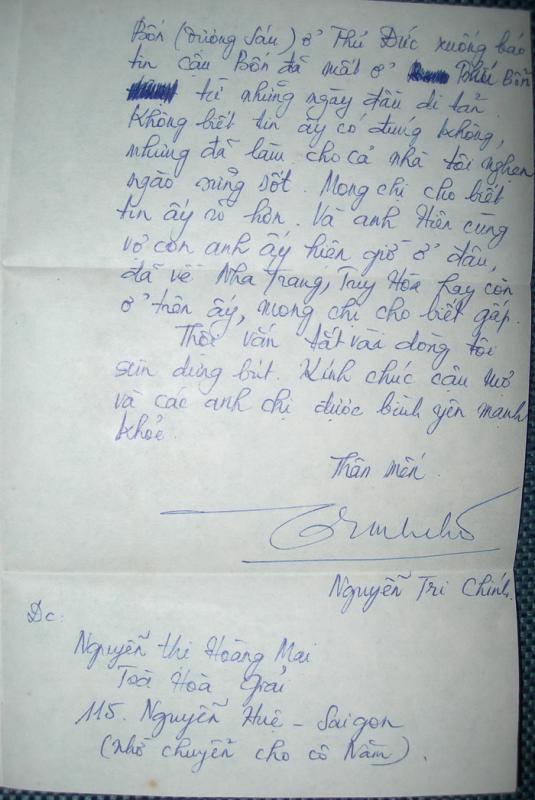 Bốn (dượng Sáu) ở Thủ Đức xuống báo
tin cậu Bốn đã mất ở Phú Bổn
từ những ngày đầu di tản.
Không biết tin ấy có đúng không,
nhưng đã làm cho cả nhà tôi nghẹn
ngào sửng sốt. Mong chị cho biết
tin ấy rõ hơn. Và anh Hiên cùng
vợ con anh ấy hiện giờ ở đâu,
đã về Nha Trang, Tuy Hòa hay còn
ở trên ấy, mong chị cho biết gấp.
Thôi vắn tắt vài dòng tôi
xin dừng bút. Kính chúc cậu mợ
và các anh chị được bình yên mạnh
khỏe.
Thân mến
Nguyễn Tri Chính
Đc:
Nguyễn thị Hoàng Mai
Toà Hoà Giải
115. Nguyễn Huệ - Saigon
(nhờ chuyển cho cô Năm).